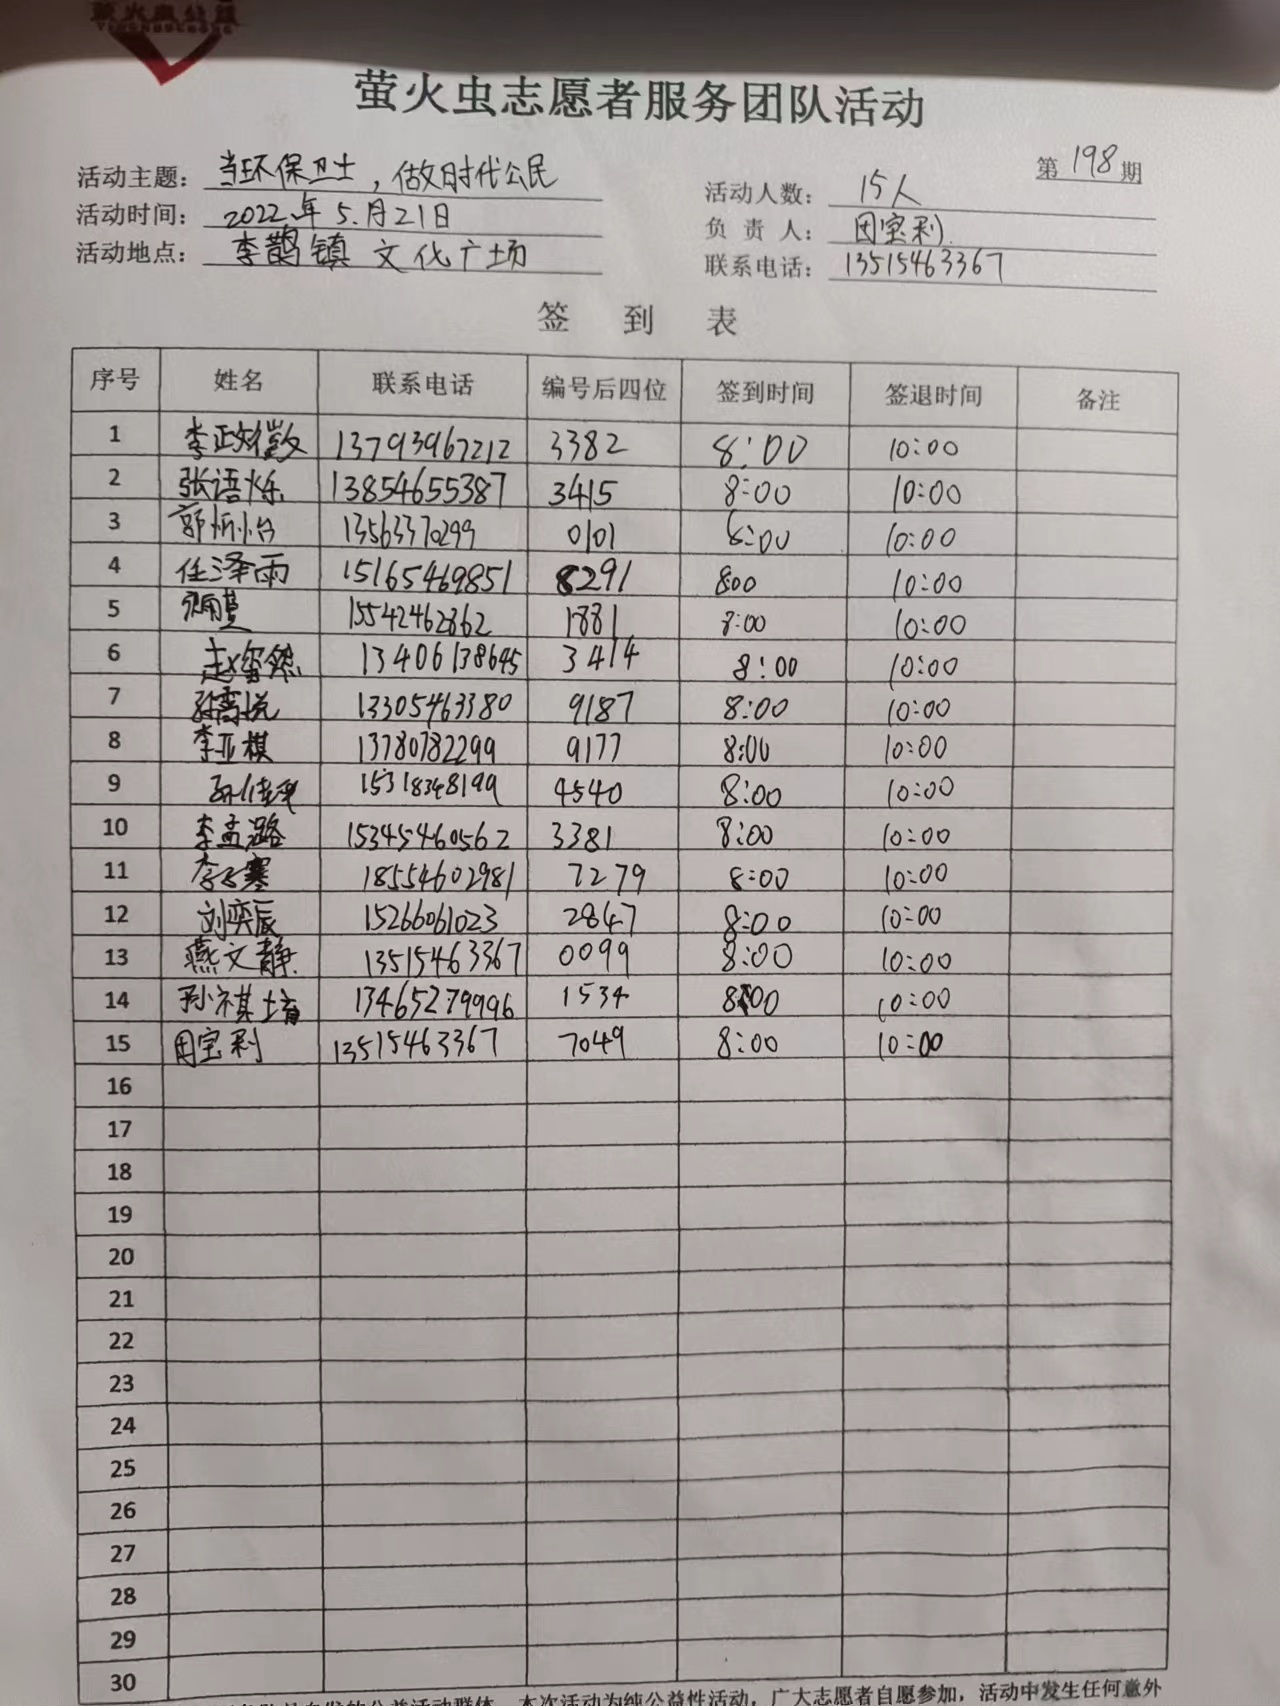 萤火虫公益
萤火虫志愿者服务团队活动
第198期
活动主题：当环保卫士，做时代公民
活动人数：15人
活动时间：2022年5月21日
负责人：田宝利
活动地点：李鹊镇文化广场
联系电话：13515463367
签到表
序号 姓名 联系电话 编号后四位 签到时间 签退时间 备注
1 李政 13793967212 3382 8:00 10:00
2 张语烁 13854655387 3415 8:00 10:00
3 郭忻怡 13563370299 0101 8:00 10:00
4 任泽雨 15165469851 8291 800 10:00
5 15542462862 1881 8:00 10:00
6 赵 13406138645 3414 8:00 10:00
7 悦 13305463380 9187 8:00 10:00
8 李亚棋 13780782299 9177 8:00 10:00
9 15318348199 4540 8:00 10:00
10 李孟潞 15345460562 3381 8:00 10:00
11 李 18554602981 7279 8:00 10:00
12 刘奕辰 15266061023 2847 8:00 10:00
13 燕文静 13515463367 0099 8:00 10:00
14 孙祺堉 13465279996 1534 8:00 10:00
15 田宝利 13515463367 7049 8:00 10:00
16
17
18
19
20
21
22
23
24
25
26
27
28
29
30
自发的公益活动群体，本次活动为纯公益性活动，广大志愿者自愿参加，活动中发生任何意外